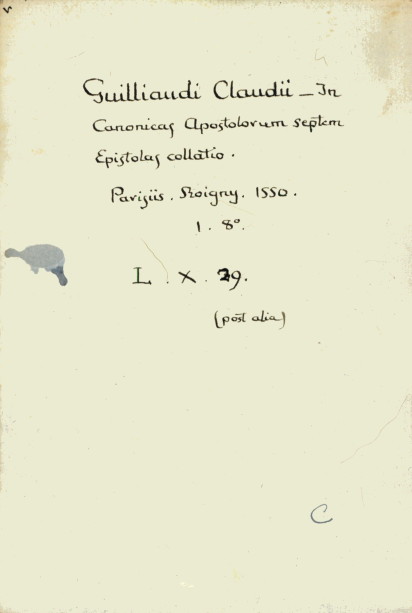 Guilliaudi Claudii — In
Canonicas Apostolorum septem
Epistolas collatio.
Parisiis. Roigny. 1550.
1. 8°.
L. X. 29.
(post alia)
C